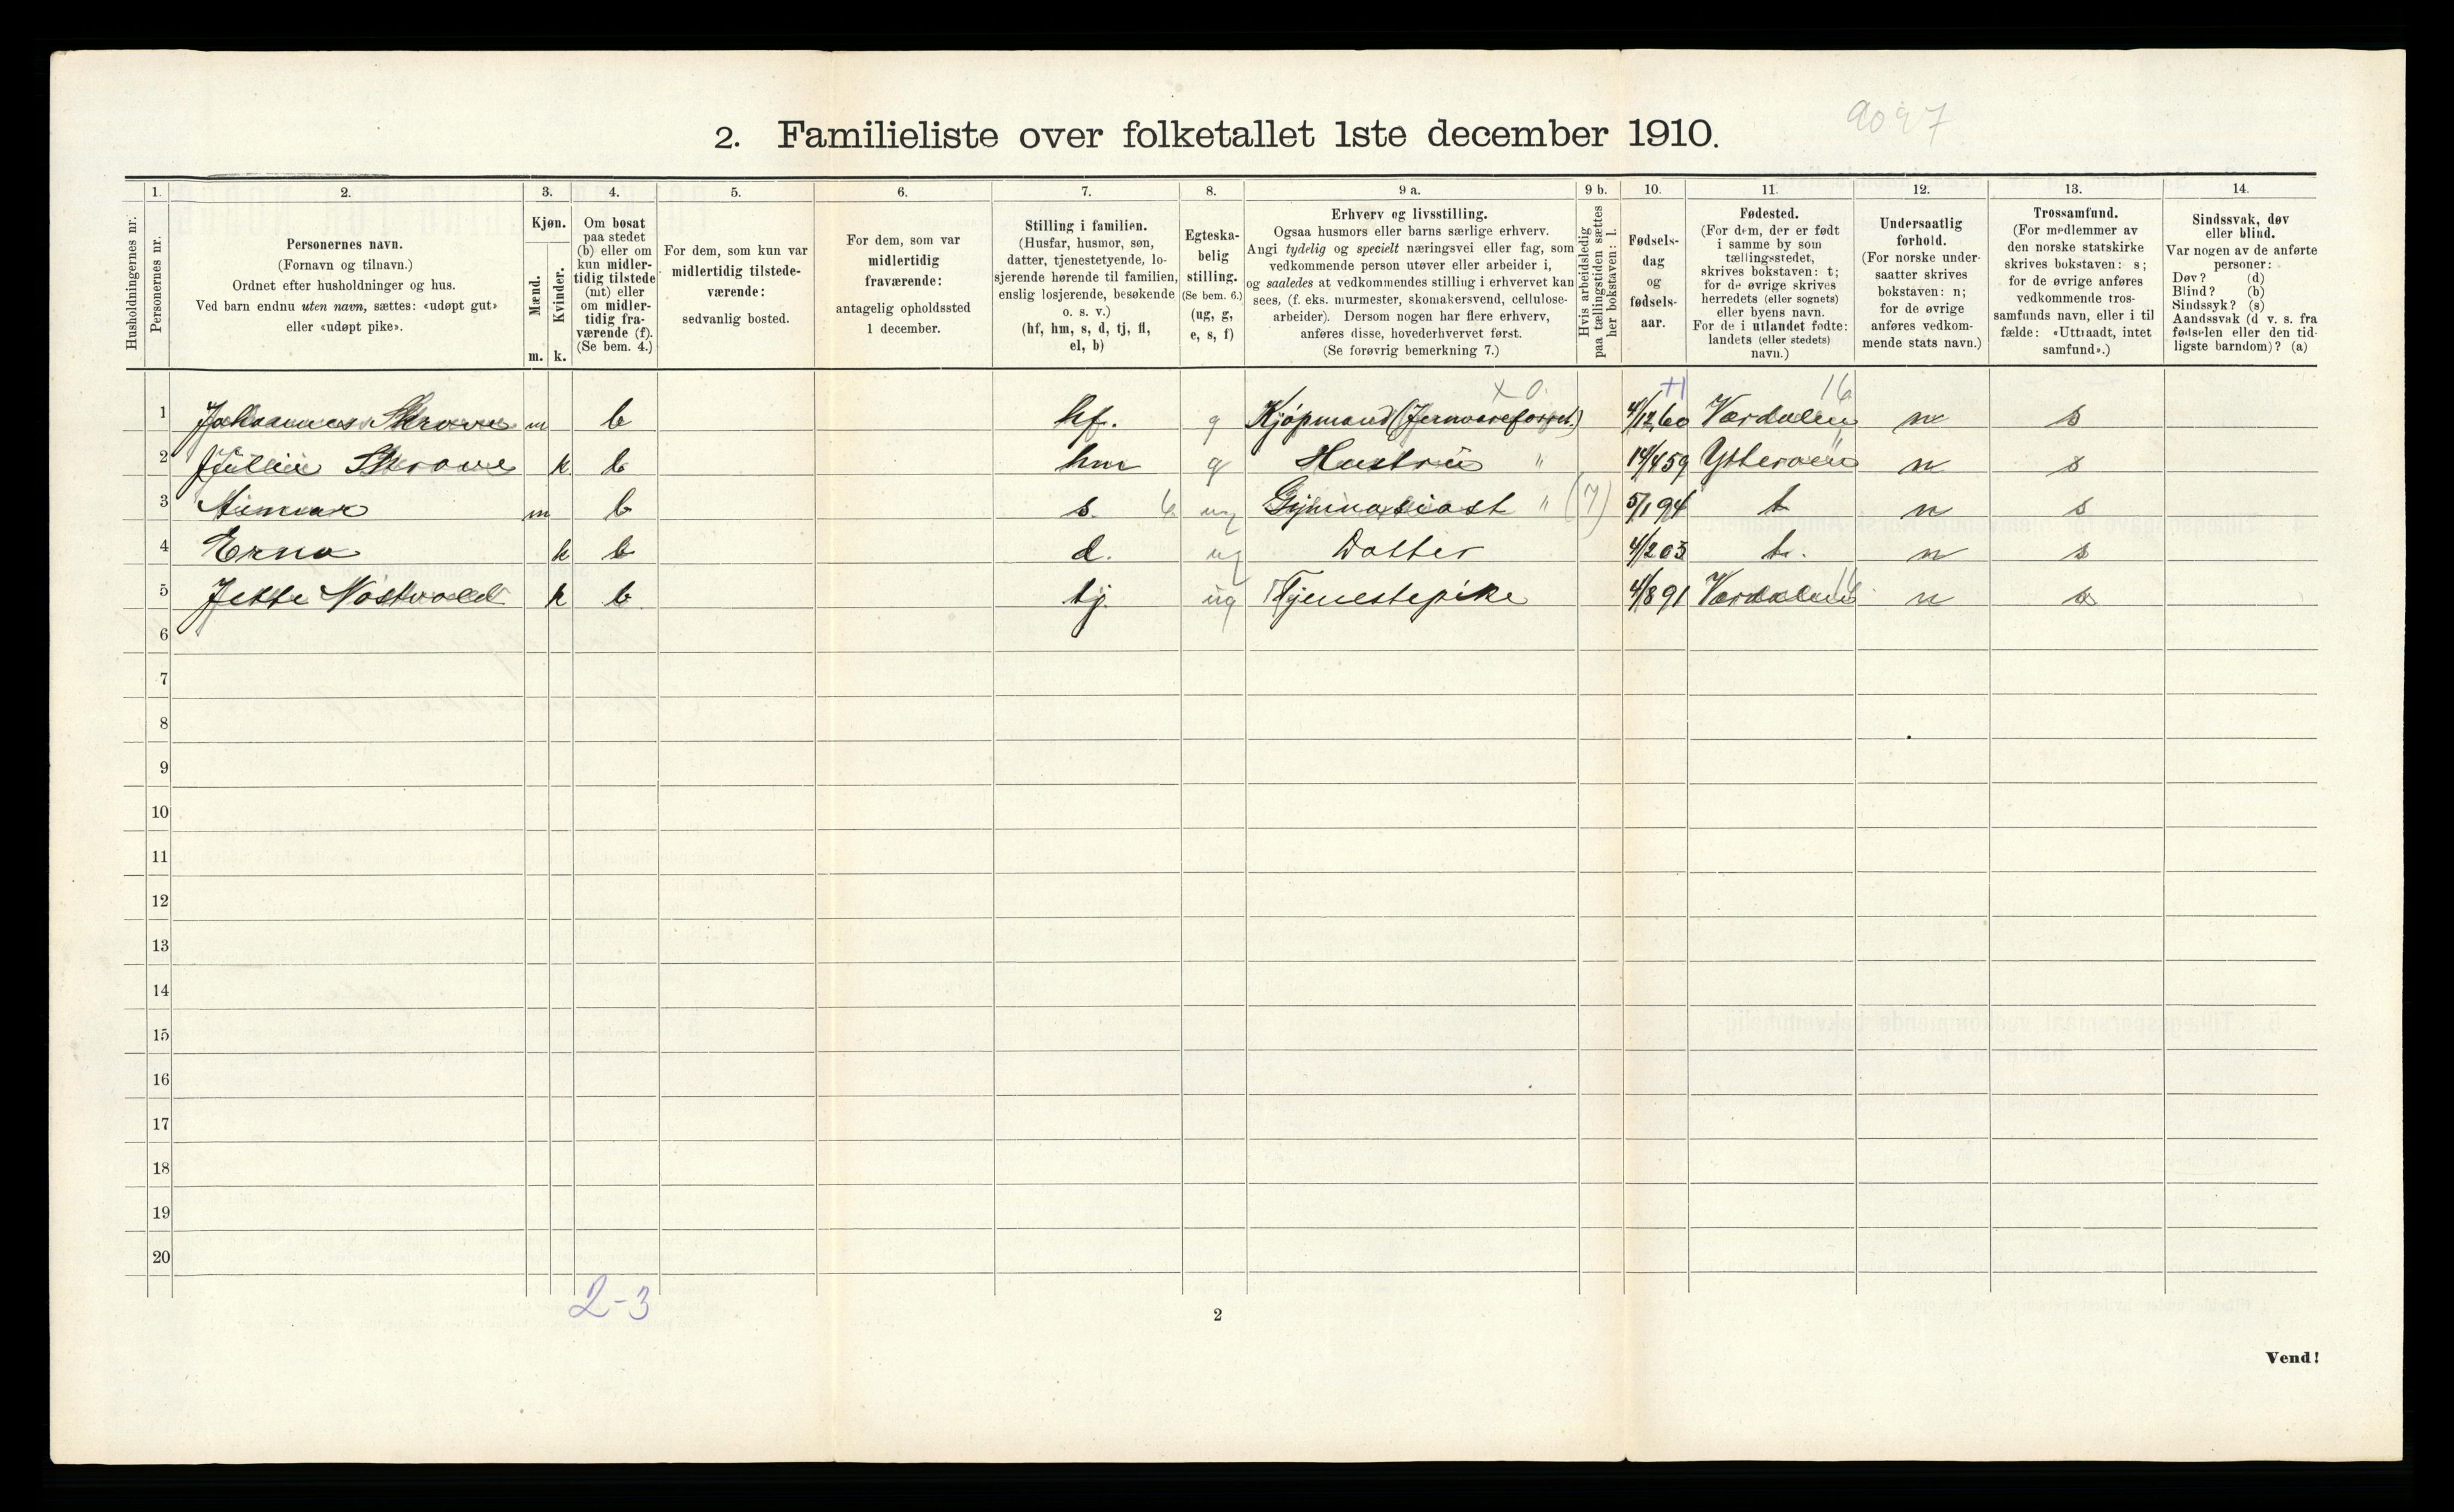 9097
2. Familieliste over folketallet 1ste december 1910.
1. 2. 3. 4. 5. 6. 7. 8. 9 a. 9 b. 10. 11. 12. 13. 14.
Husholdningernes nr.
Personernes nr.
Personernes navn.
(Fornavn og tilnavn.)
Ordnet efter husholdninger og hus.
Ved barn endnu uten navn, sættes: «udøpt gut»
eller «udøpt pike».
Kjøn.
Mænd.
Kvinder.
m. k.
Om bosat
paa stedet
(b) eller om
kun midler-
tidig tilstede
(mt) eller
om midler-
tidig fra-
værende (f).
(Se bem. 4.)
For dem, som kun var
midlertidig tilstede-
værende:
sedvanlig bosted.
For dem, som var
midlertidig
fraværende:
antagelig opholdssted
1 december.
Stilling i familien.
(Husfar, husmor, søn,
datter, tjenestetyende, lo-
sjerende hørende til familien,
enslig losjerende, besøkende
o. s. v.)
(hf, hm, s, d, tj, fl,
el, b)
Egteska-
belig
stilling.
(Se bem. 6.)
(ug, g,
e, s, f)
Erhverv og livsstilling.
Ogsaa husmors eller barns særlige erhverv.
Angi tydelig og specielt næringsvei eller fag, som
vedkommende person utøver eller arbeider i,
og saaledes at vedkommendes stilling i erhvervet kan
sees, (f. eks. murmester, skomakersvend, cellulose-
arbeider). Dersom nogen har flere erhverv,
anføres disse, hovederhvervet først.
(Se forøvrig bemerkning 7.)
Hvis arbeidsledig
paa tællingstiden sættes
her bokstaven: l.
Fødsels-
dag
og
fødsels-
aar.
Fødested.
(For dem, der er født
i samme by som
tællingsstedet,
skrives bokstaven: t;
for de øvrige skrives
herredets (eller sognets)
eller byens navn.
For de i utlandet fødte:
landets (eller stedets)
navn.)
Undersaatlig
forhold.
(For norske under-
saatter skrives
bokstaven: n;
for de øvrige
anføres vedkom-
mende stats navn.)
Trossamfund.
(For medlemmer av
den norske statskirke
skrives bokstaven: s;
for de øvrige anføres
vedkommende tros-
samfunds navn, eller i til
fælde: «Uttraadt, intet
samfund».)
Sindssvak, døv
eller blind.
Var nogen av de anførte
personer:
Døv? (d)
Blind? (b)
Sindssyk? (s)
Aandssvak (d v. s. fra
fødselen eller den tid-
ligste barndom)? (a)
x 0. +1 16
1 Johannes Skrove m b hf. g Kjøpmand (Jernvareforret.) 4/12 60 Værdalen n s
2 Julie Skrove k b hm g Hustru " 14/4 59 Ytterøen n s
3 m b s. 6 ug Gymnasiast " (7) 5/1 94 t n s
4 Erna k b d. ug Datter 4/2 03 t. n s
5 Jette k b tj. ug Tjenestepike 4/8 91 Værdalen 16 n s
6
7
8
9
10
11
12
13
14
15
16
17
18
19
20
2-3
2
Vend!